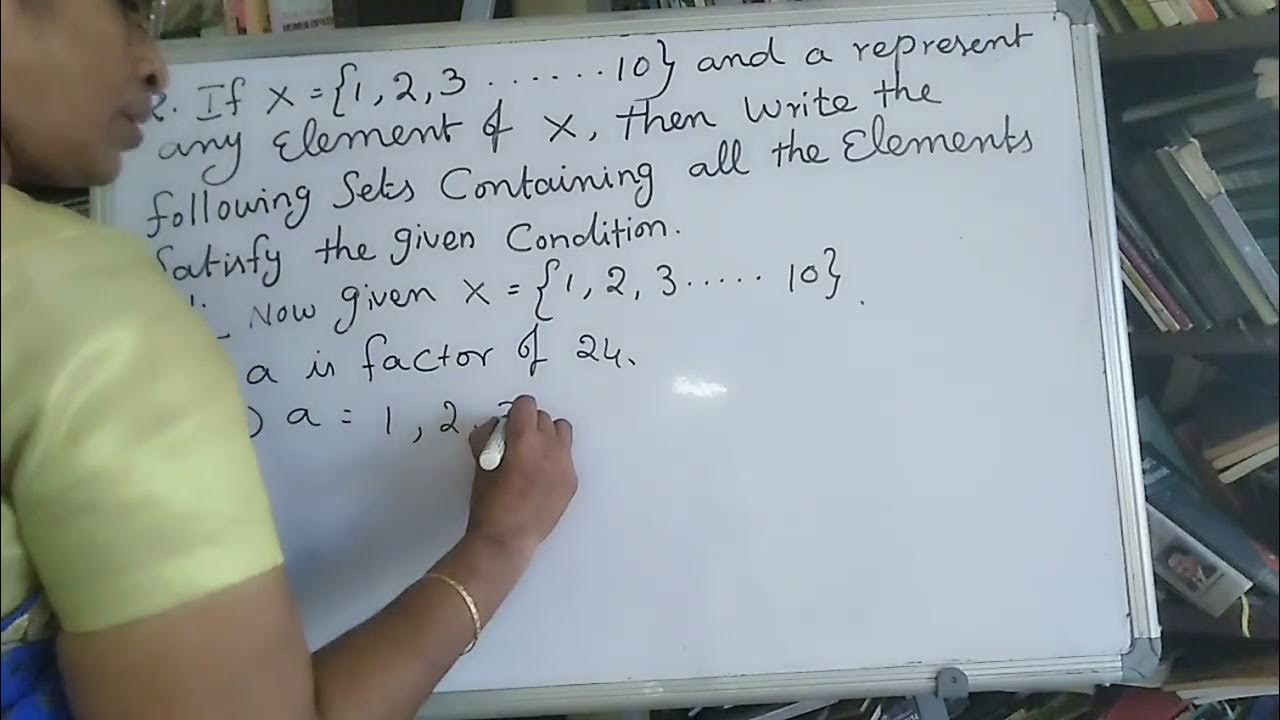 If X = {1, 2, 3 ...... 10} and a represent
any Element of X, then write the
following Sets Containing all the Elements
Satisfy the given Condition.
Now given X = {1, 2, 3 ..... 10}.
a is factor of 24.
a = 1, 2,